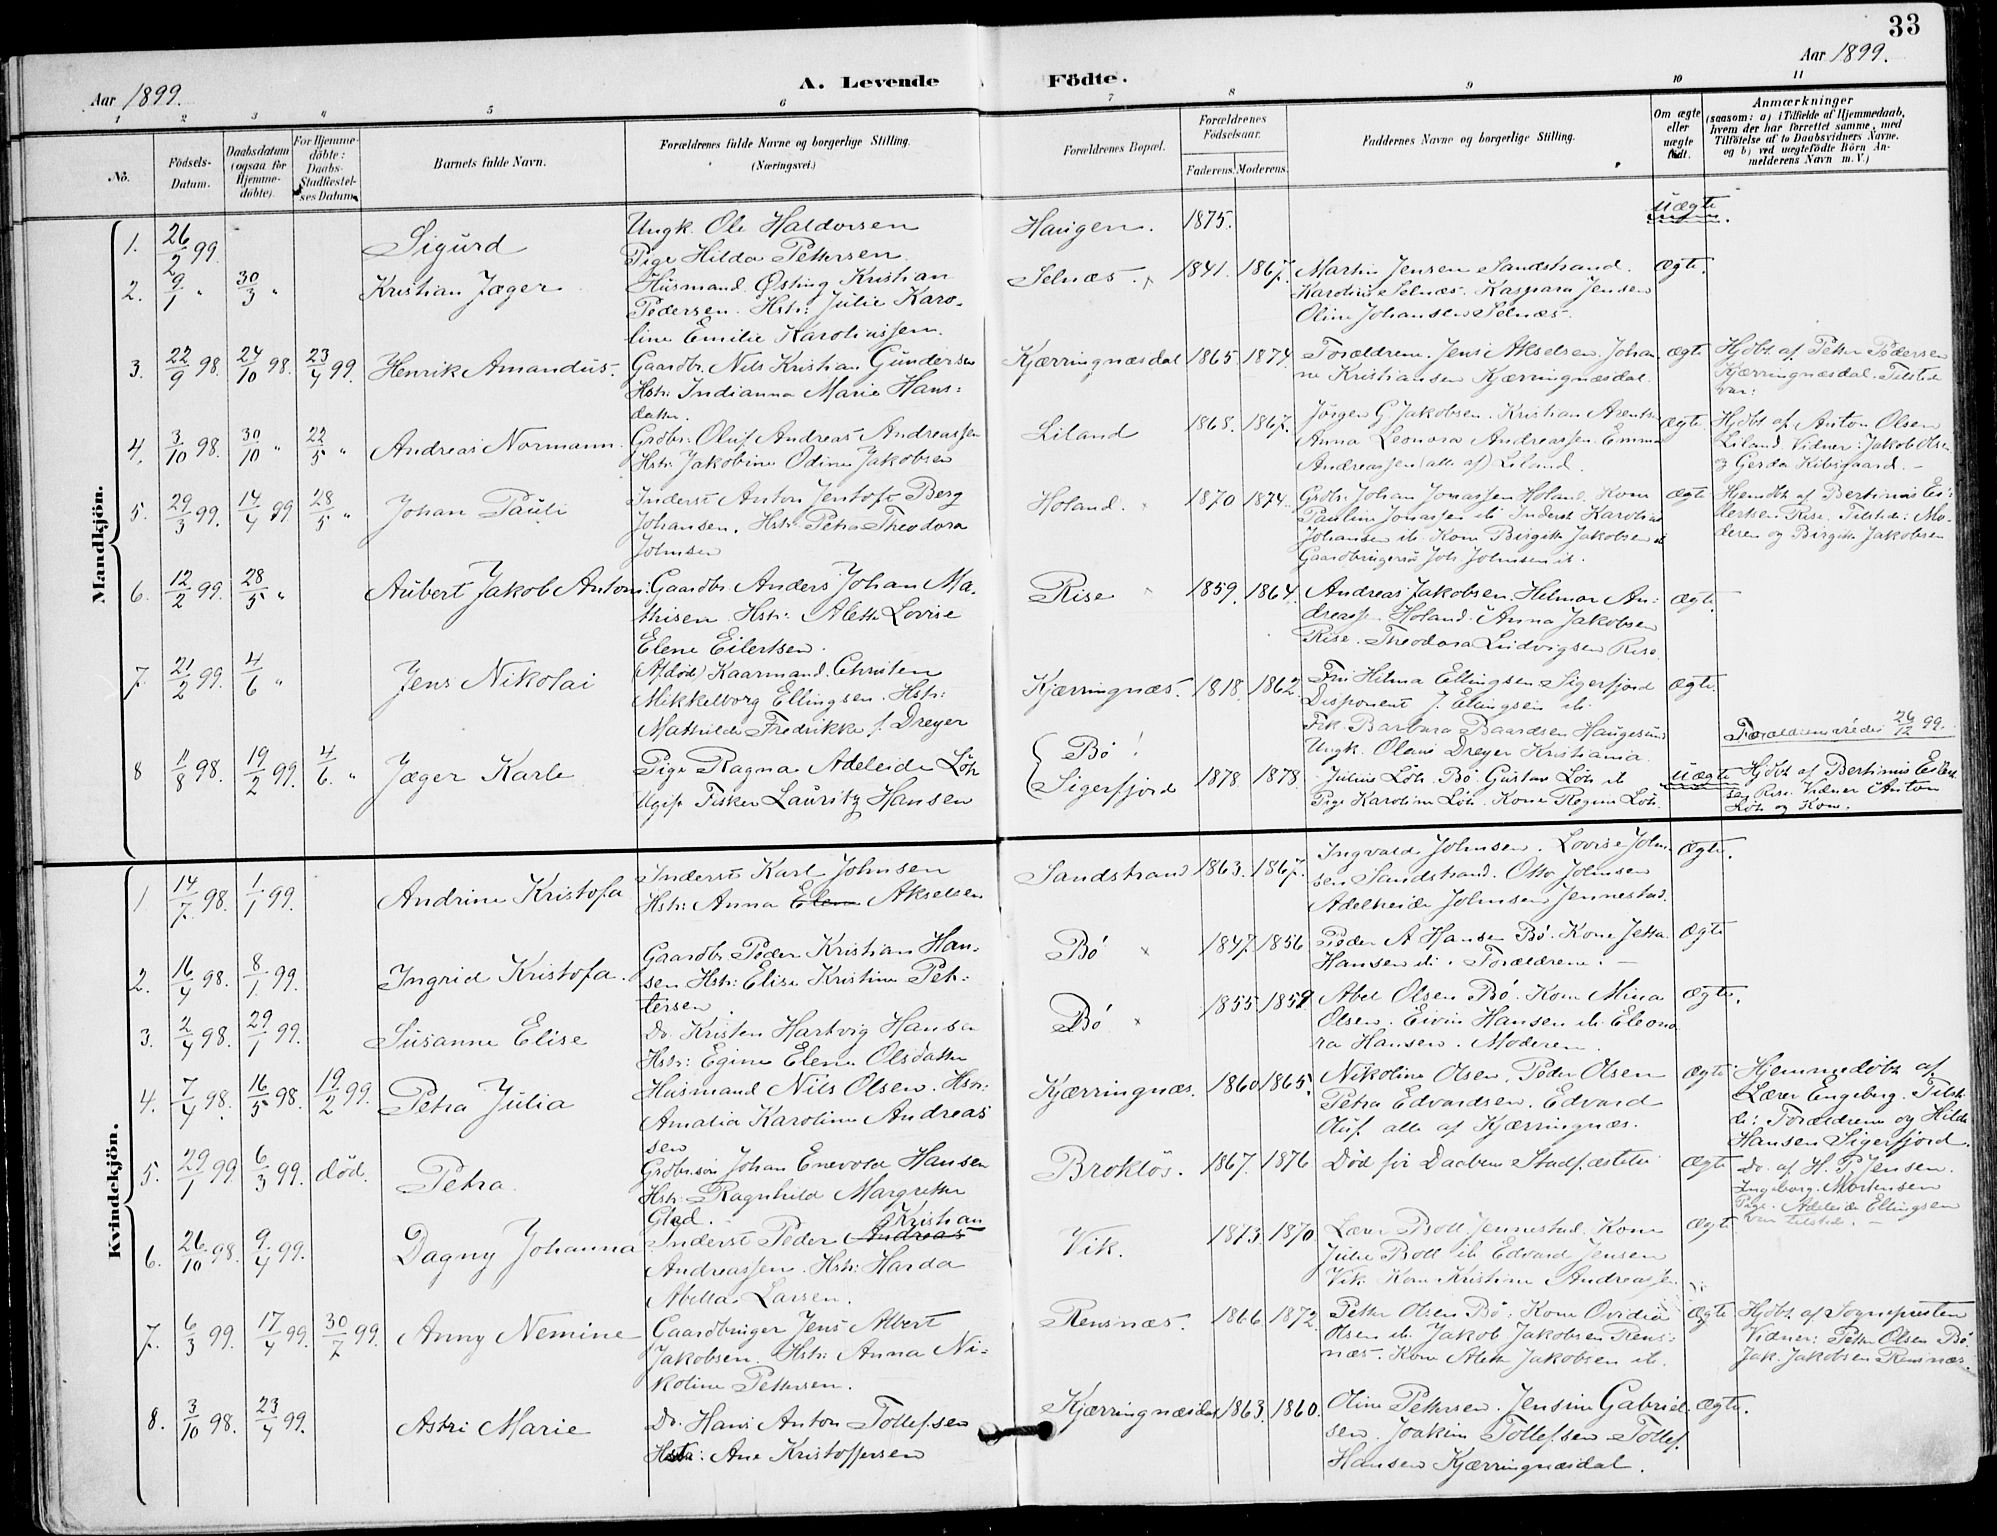 33
Aar 1899.
A. Levende Födte.
Aar 1899.
1 2 3 4 5 6 7 8 9 10 11
No.
Födsels-
Datum.
Daabsdatum
(ogsaa for
Hjemme-
döbte).
For Hjemme-
döbte:
Daabs-
Stadfæstel-
ses Datum.
Barnets fulde Navn.
Forældrenes fulde Navne og borgerlige Stilling.
(Næringsvei.)
Forældrenes Bopæl.
Forældrenes
Födselsaar.
Faderens. Moderens.
Faddernes Navne og borgerlige Stilling.
Om ægte
eller
uægte
født.
Anmærkninger
(saasom: a) i Tilfælde af Hjemmedaab,
hvem der har forrettet samme, med
Tilföielse af to Daabsvidners Navne.
og b) ved uægtefödte Börn An-
melderens Navn m. V.)
Mandkjön.
1. 26/2 99. Sigurd
Ungk. Ole Haldorsen
Pige Hilda Pettersen.
Haugen. 1875. Uægte
2. 9/1 " 30/3 " Kristian Jæger
Husmand Østing Kristian
Pedersen. Hstr: Julie Karo-
line Emilie Karoliussen.
Selnæs. 1841. 1867. Ægte.
Martin Jensen Sandstrand.
Karolius Selnæs. Kaspara Jensen
Oline Johansen Selnæs.
3. 22/9 98. 24/10 98. 23/4 99. Henrik Amandus.
Gaardbr. Nils Kristian Gundersen
Hstr: Indianna Marie Hans:
datter.
Kjærringnæsdal 1865 1874. ægte
Forældrene. Jens Akselsen. Johan
ne Kristiansen Kjærringnæsdal.
Hjdbt. af Petter Pedersen
Kjærringnæsdal. Tilstede
var:
4. 3/10 98. 30/10 " 22/5 " Andreas Normann.
Grdbr: Oluf Andreas Andreassen
Hstr: Jakobine Odine Jakobsen
Liland 1868. 1867. ægte
Jörgen G. Jakobsen. Kristian Arentsen
Anna Leonora Andreassen. Emma
Andreassen (alle af) Liland.
Hjdbt. af. Anton Olsen
Liland. Vidner: Jakob Olsen
og Gerda Kibsgaard. -
5. 29/3 99. 14/4 99 28/5 " Johan Pauli
Inderst Anton Jentoft Berg
Johansen. Hstr: Petra Theodora
Johnsen
Holand. 1870 1874. ægte
Grdbr. Johan Jonassen Holand. Kone
Pauline Jonassen ib. Inderst Karolius
Johansen ib. Kone Birgitte Jakobsen ib
Gaardbrugers. Joh. Johnsen ib.
Hemdbt. af Bertinus Ei-
lertsen Rise. Tilstede: Mo-
deren og Birgitte Jakobsen
6. 12/2 99. 28/5 " Aubert Jakob Anton:
Gaardbr Anders Johan Ma-
thisen. Hstr: Alette Lovise
Elene Eilertsen.
Rise 1859. 1864. ægte.
Andreas Jakobsen. Helmor An:
dreass. Holand. Anna Jakobsen
Rise. Theodora Ludvigsen Rise.
7. 21/2 99. 4/6 " Jens Nikolai
(Afdöd) Kaarmand. Christen
Mikkelborg Ellingsen. Hstr:
Mathilde Fredrikke f. Dreyer
Kjærringnæs. 1818. 1862. Ægte.
Fru Hilma Ellingsen Sigerfjord
Disponent J. Ellingsen ib.
Frk. Barbara Baardsen Haugesund
Ungk. Olaus Dreyer Kristiania.
Forældrene viede 26/12 99.
8 11/8 98. 19/2 99. 4/6 " Jæger Karle
Pige Ragna Adeleide Löb
Ugift Fisker Lauritz Hansen
Bö
Sigerfjord 1878. 1878. Uægte
Julius Löb. Bö. Gustav Löb ib
Pige Karoline Löb. Kone Regine Löb.
Hjdbt. af Bertinus Eilert
sen Rise. Vidner Anton
Löb og Kone.
Kvindekjön.
1 14/7 98. 1/1 99. Andrine Kristofa
Inderst Karl Johnsen
Hstr: Anna Elene Akselsen
Sandstrand 1863. 1867. Ægte.
Ingvald Johnsen. Lovise John-
sen Sandstrand. Otto Johnsen
Adelheide Johnsen Jennestad.
2. 16/4 98. 8/1 99. Ingrid Kristofa.
Gaardbr. Peder Kristian Han-
sen Hstr: Elise Kristine Pet-
tersen.
Bö 1847. 1856 Ægte
Peder A Hansen Bö. Kone Jetta
Hansen ib. Forældrene. -
3. 2/4 98. 29/1 99. Susanne Elise
Do. Kristen Hartvig Hansen
Hstr: Egine Elene Olsdatter
Bö 1855. 1859. Ægte.
Abel Olsen Bö. Kone Mina
Olsen. Eivin Hansen ib. Eleono
ra Hansen. Moderen.
4. 7/4 98. 16/5 98. 19/2 99. Petra Julia
Husmand Nils Olsen. Hstr:
Amalia Karoline Andreas
sen
Kjærringnæs. 1860 1865. ægte
Nikoline Olsen. Peder Olsen
Petra Edvardsen. Edvard
Oluf. alle af Kjærringnæs.
Hjemmedöbt af
Lærer Engeberg. Tilste
de: Forældrene og Hilda
Hansen Sigerfjord.
5. 29/1 99 6/3 99. död. Petra.
Grdbrsön Johan Enevold Hansen
Hstr: Ragnhild Margrethe
Glad. -
Broklös. 1867. 1876 ægte
Död för Daabens Stadfæstelse
Do. af H. P. Jensen.
Ingeborg. Mortensen
Pige. Adeleide Ellingsen
var tilstede. -
6. 26/10 98. 9/4 99. Dagny Johanna
Kristian
Inderst Peder Andreas
Andreassen. Hstr: Harda
Abella Larsen.
Vik. 1873. 1870. ægte
Lærer Boll Jennestad. Kone
Julie Boll ib Edvard Jensen
Vik. Kone Kristine Andreassen
7. 6/3 99. 17/4 99. 30/7 99. Anny Nemine
Gaardbruger Jens Albert
Jakobsen. Hstr: Anna Ni-
koline Pettersen.
Rensnæs. 1866. 1872. ægte
Petter Olsen Bö. Kone Ovidia
Olsen ib. Jakob Jakobsen Rens:
næs. Kone Alette Jakobsen ib.
Hjdbt. af Sognepresten
Vidner: Petter Olsen Bö.
Jak. Jakobsen Rensnæs.
8. 3/10 98. 23/4 99. Astri Marie
Do. Hans Anton Tollefsen
Hstr: Ane Kristoffersen
Kjærringnæsdal 1863. 1860. Ægte.
Oline Pettersen. Jensine Gabriel-
sen. Joakim Tollefsen. Tollef.
Hansen Kjærringnæsdal.